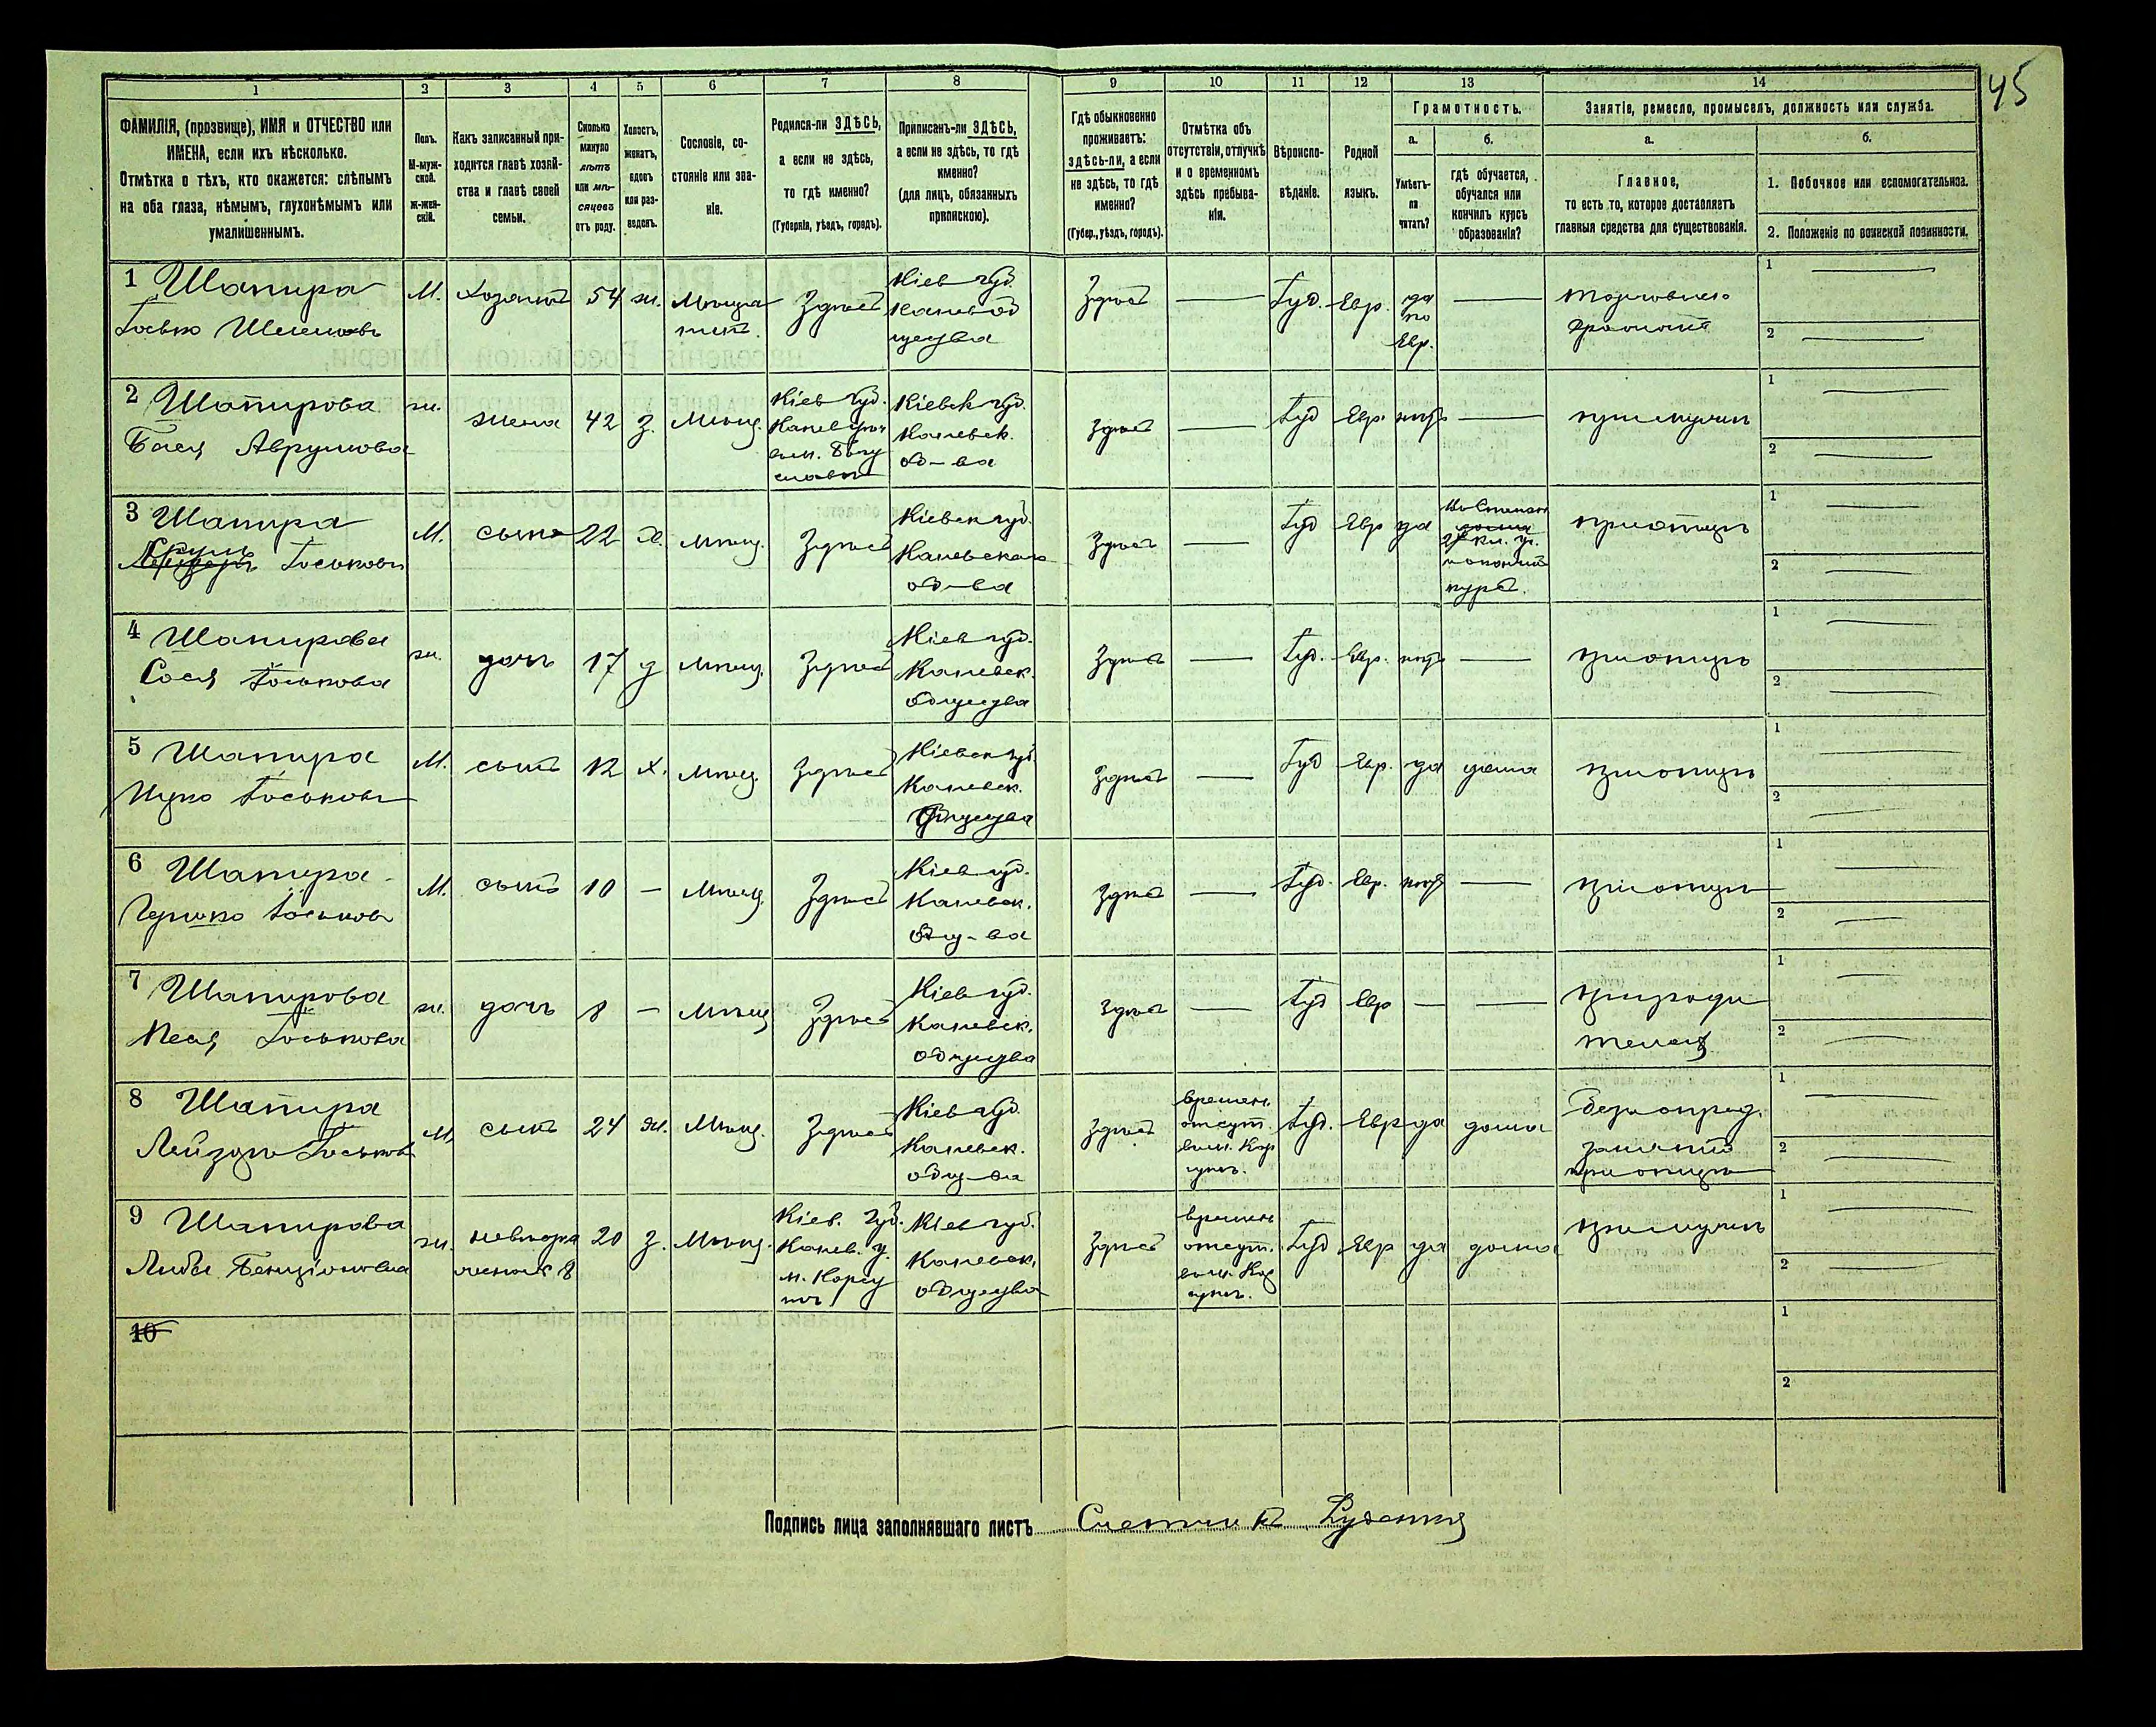 45
1 2 3 4 5 6 7 8 9 10 11 12 13 14
ФАМИЛІЯ, (прозвище), ИМЯ и ОТЧЕСТВО или
ИМЕНА, если ихъ нѣсколько.
Отмѣтка о тѣхъ, кто окажется: слѣпымъ
на оба глаза, нѣмымъ, глухонѣмымъ или
умалишеннымъ.
Полъ.
М-муж-
ской.
Ж-жен-
скій.
Какъ записанный при-
ходится главѣ хозяй-
ства и главѣ своей
семьи.
Сколько
минуло
лѣтъ
или мѣ-
сяцевъ
отъ роду.
Холостъ,
женатъ,
вдовъ
или раз-
веденъ.
Сословіе, со-
стояніе или зва-
ніе.
Родился-ли ЗДѢСЬ,
а если не здѣсь,
то гдѣ именно?
(Губернія, уѣздъ, городъ).
Приписанъ-ли ЗДѢСЬ,
а если не здѣсь, то гдѣ
именно?
(для лицъ, обязанныхъ
припискою).
Гдѣ обыкновенно
проживаетъ:
здѣсь-ли, а если
не здѣсь, то гдѣ
именно?
(Губер., уѣздъ, городъ).
Отмѣтка объ
отсутствіи, отлучкѣ
и о временномъ
здѣсь пребыва-
ніи.
Вѣроиспо-
вѣданіе.
Родной
языкъ.
Грамотность.
а.
Умѣетъ-
ли
читать?
б.
гдѣ обучается,
обучался или
кончилъ курсъ
образованія?
Занятіе, ремесло, промыселъ, должность или служба.
а.
Главное,
то есть то, которое доставляетъ
главныя средства для существованія.
б.
1. Побочное или вспомогательное.
2. Положеніе по воинской повинности.
1 Шапира
Іосько
М. хозяинъ 54 ж. Мѣща
нинъ.
Здѣсь
Кіев губ.
Каневъ об
щества
Здѣсь — Іуд. Евр. да
по
Евр. —
1
2
2 Шапирова
Бася Аврумова
ж. жена 42 з. Мѣщ.
Кіев губ.
Канев уѣз
м. Богу
славъ
Кіевск губ.
Каневск.
об-ва
Здѣсь — Іуд Евр. нѣтъ — при мужѣ
1
2
3 Шапира
Сруль Іоськовъ
М. сынъ 22 х. Мѣщ. Здѣсь
Кіевск губ.
Каневскаго
об-ва
Здѣсь — Іуд Евр да
2х кл. уч.
курсъ.
при отцѣ
1
2
4 Шапирова
Сося Іоськова
ж. дочь 17 д Мѣщ. Здѣсь
Кіев губ.
Каневск.
общества
Здѣсь — Іуд. Евр. нѣтъ — при отцѣ
1
2
5 Шапира
Ицко Іоськовъ
М. сынъ 12 х. Мѣщ. Здѣсь
Кіевск губ
Каневск.
общества
Здѣсь — Іуд Евр. да дома при отцѣ
1
2
6 Шапира
Гершко Іоськовъ
М. сынъ 10 — Мѣщ. Здѣсь
Кіев губ.
Каневск.
общ-ва
Здѣсь — Іуд. Евр. нѣтъ — при отцѣ
1
2
7 Шапирова
Песя Іоськова
ж. дочь 8 — Мѣщ Здѣсь
Кіев губ.
Каневск.
общества
Здѣсь — Іуд Евр — — при роди
теляхъ
1
2
8 Шапира
Лейзоръ Іоськовъ
М. сынъ 24 ж. Мѣщ. Здѣсь
Кіев губ.
Каневск.
общ-ва
Здѣсь
времен.
отсут.
Кор
сунь.
Іуд. Евр да дома
безъ опред.
занятій
при отцѣ
1
2
9 Шапирова
Либа Бенціонова
ж. невѣстка
8 20 з. Мѣщ.
Кіев. губ.
Канев. у.
м. Корсу
нь
Кіев губ.
Каневск.
общества
Здѣсь
времен
отсут.
Кор
сунь.
Іуд Евр да дома при мужѣ
1
2
10
1
2
Подпись лица заполнявшаго листъ Счетчикъ